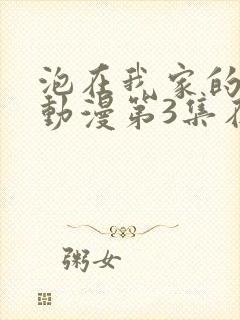 泡在我家的
動漫第3集在
粥女